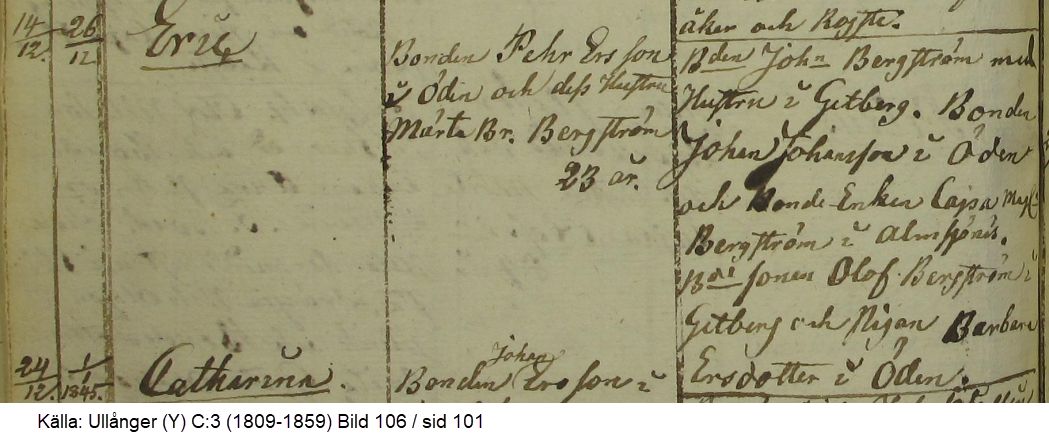 14/12. 26/12 Eric
Bonden Pehr Ersson
i Öden och dess Hustru
Märta Br. Bergström
23 år.
åker och
Bden John Bergström med
Hustru i Getberg. Bonden
Johan Johansson i Öden
och Bonde-Enkan Cajsa
Bergström i
Bde sonen Olof Bergström i
Getberg och Pigan Barbara
Ersdotter i Öden.
24/12. 1/1845. Catharina.
Johan
Bonden Ersson i
Källa: Ullånger (Y) C:3 (1809-1859) Bild 106 / sid 101